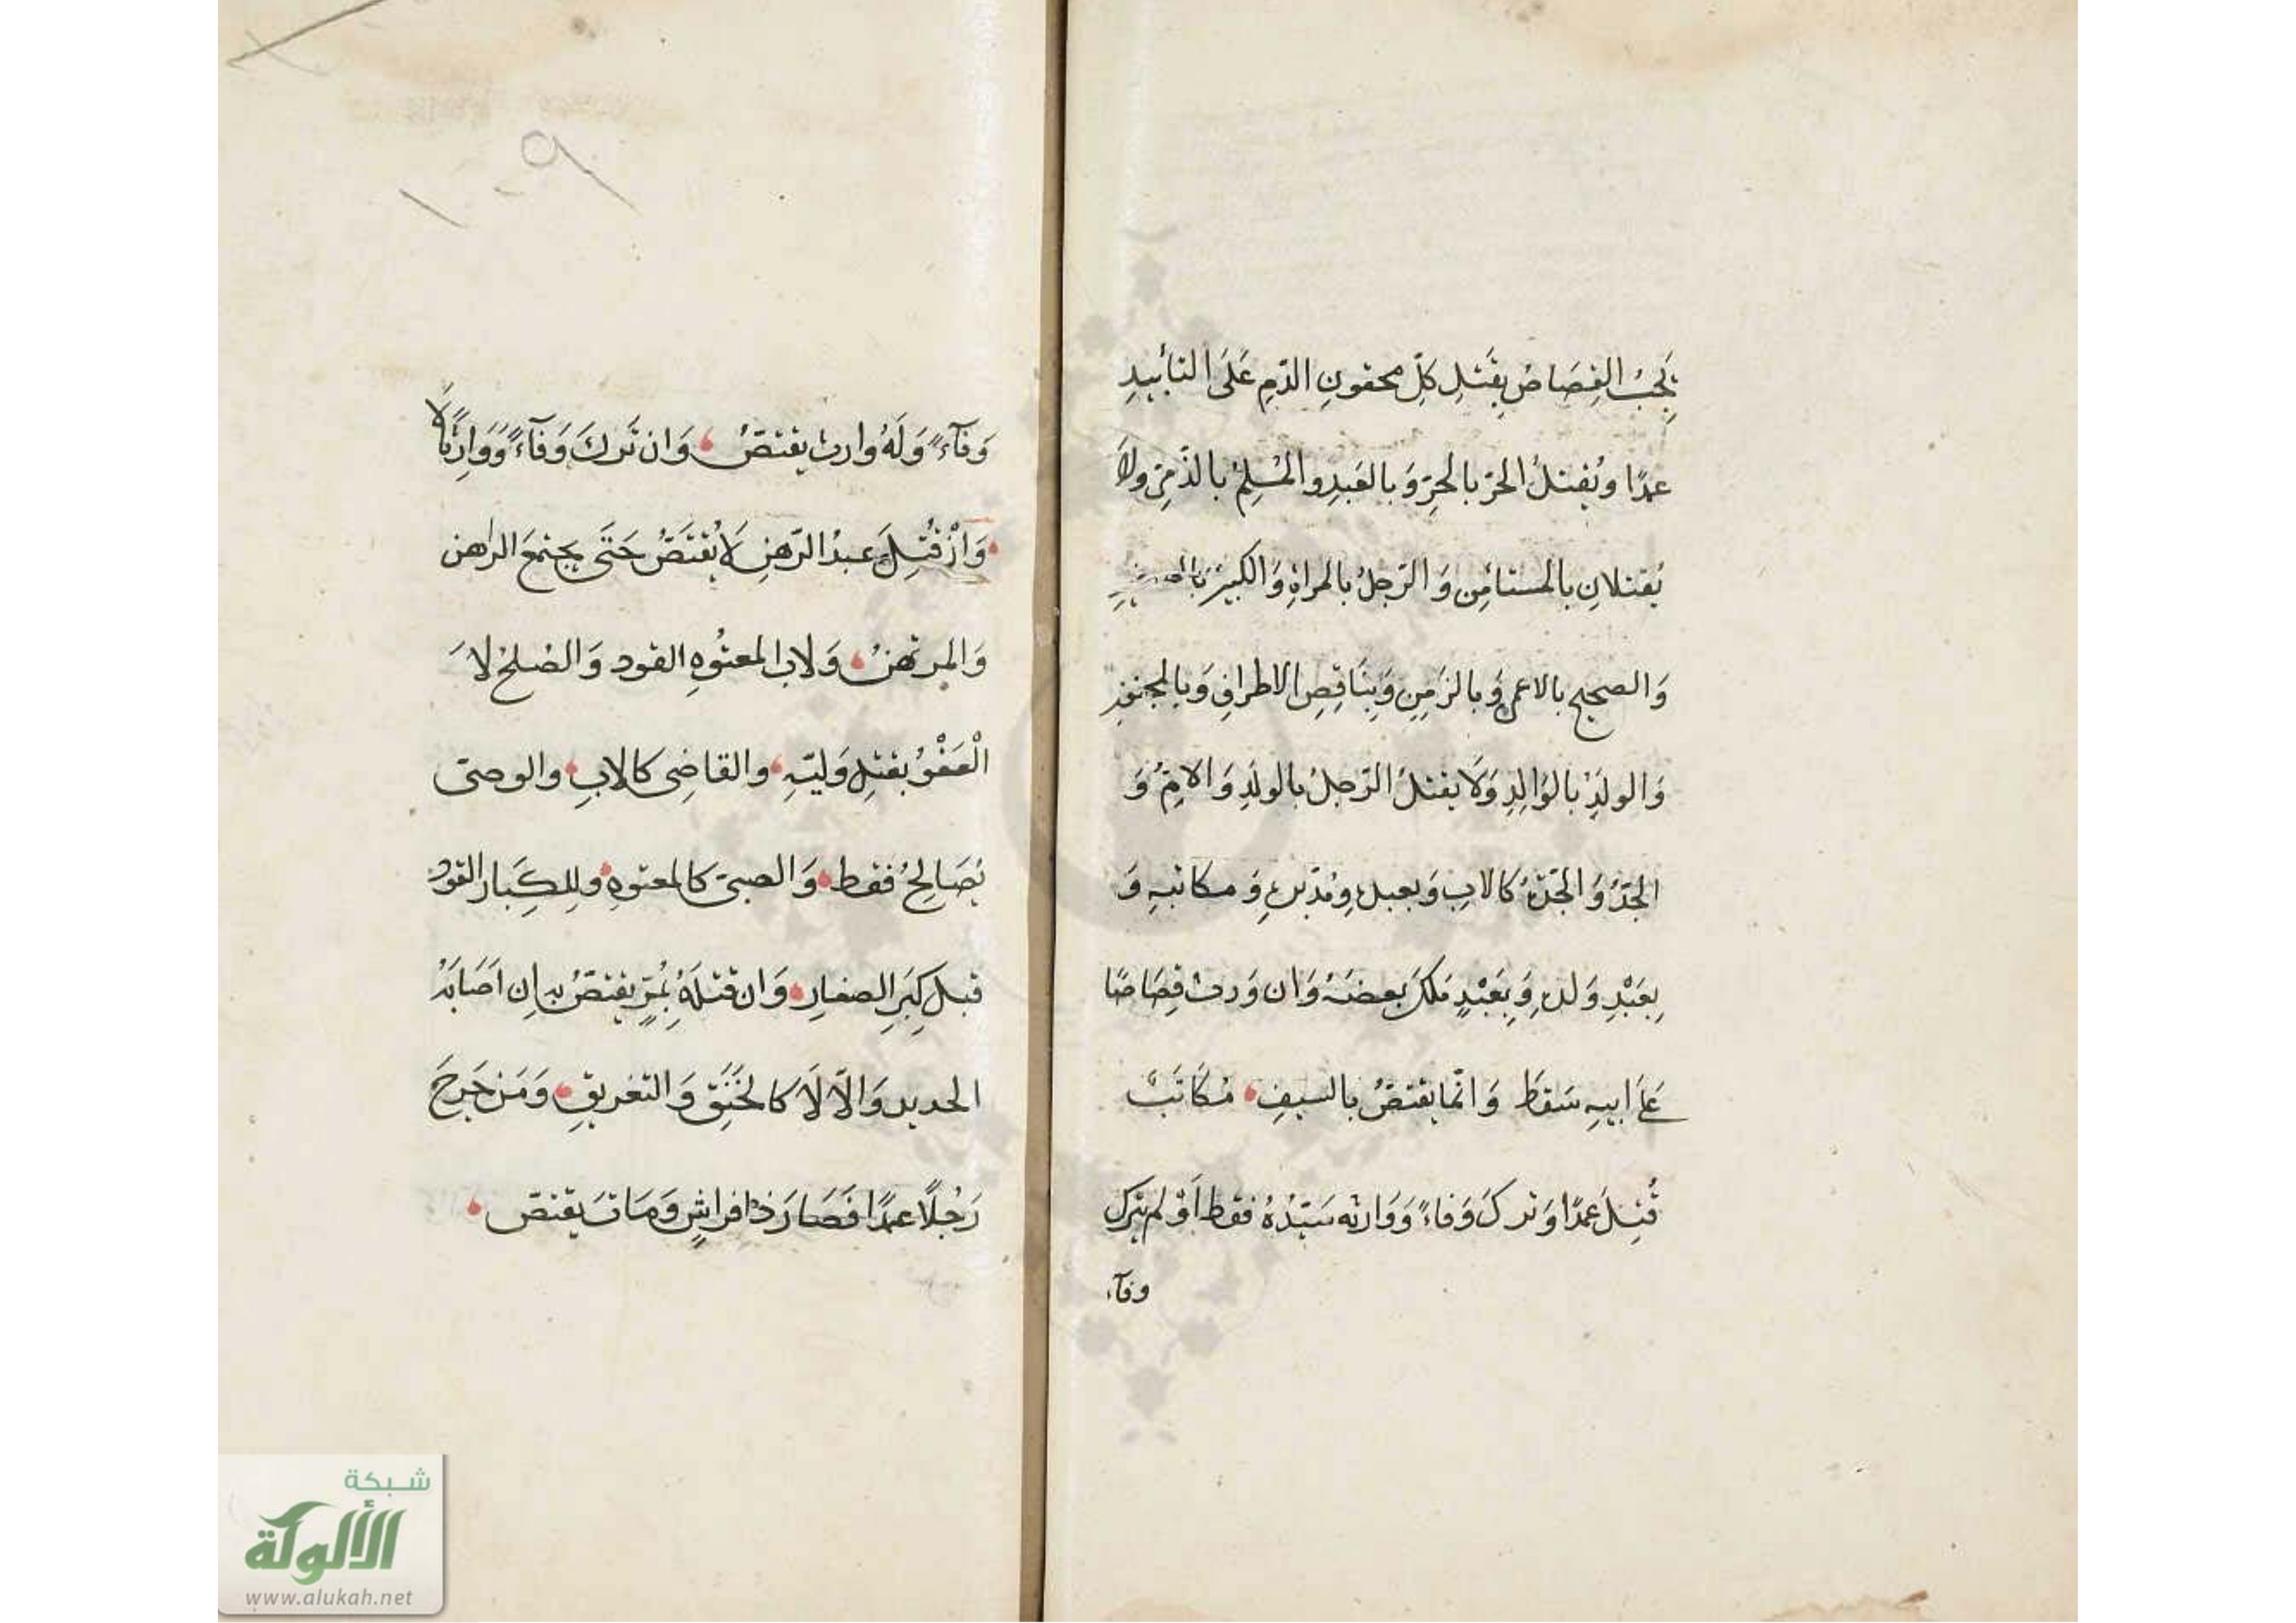 يَجِبُ القِصَاصُ بِقَتلِ كلِّ محقونِ الدّمِ عَلَى التابيدِ
عمدًا ويُقتلُ الحرّ بالحرِّ وَبالعَبدِ والمُسلِمُ بالذّمىِّ ولَا
يُقتلانِ بالمستأمِن وَالرّجلُ بالمراةِ وَالكبيرُ بالصغيرِ
وَالصحيح بالاعمى وَبالزَمِنِ وَبِنَاقِصِ الاطرافِ وَبالمجنونِ
وَالولدُ بالوَالِدِ وَلَا يقتلُ الرّجلُ بالولَدِ وَالامّ وَ
الجَدّ وَالجَدّةُ كالابِ وَبعبدهِ ومُدَبّرهِ وَمكاتبهِ وَ
بِعَبْدِ وَلدهِ وَبِعَبْدٍ مَلَكَ بعضَهُ وَان وَرث قِصَاصًا
عَلَى ابيهِ سَقطَ وَانّما يقتصُّ بالسيفِ مُكَاتَبٌ
قُتِلَ عمدًا وَتركَ وَفاءً وَوَارثه سَيّدُهُ فقط اَوْ لم يترك
وفآء
وَفآءً وَلَهُ وارث يقتصُّ وَان تَركَ وَفآءً وَوَارِثًا لا
وَانْ قُتِلَ عبدُ الرّهنِ لَا يُقتَصُّ حَتَى يجتمعَ الراهن
وَالمرتهنُ وَلاب المعتُوهِ القود وَالصُلحُ لَا
الْعَفْوُ بقتلِ وَليّهِ والقاضِى كالابِ والوصىّ
يُصَالِحُ فقط وَالصبىّ كالمعتوهِ وللِكِبَار القودُ
قبلَ كِبَرِ الصغارِ وَان قتلَهُ بِمُرٍّ يقتصُّ به اِن اَصَابَهُ
الحديد وَالّا لَا كالخَنَقِ وَالتغريقِ وَمَن جَرحَ
رَجُلًا عمدًا فَصَارَ ذا فراشٍ وَمَات يقتصّ
١٠٩
شبكة
الألوكة
www.alukah.net